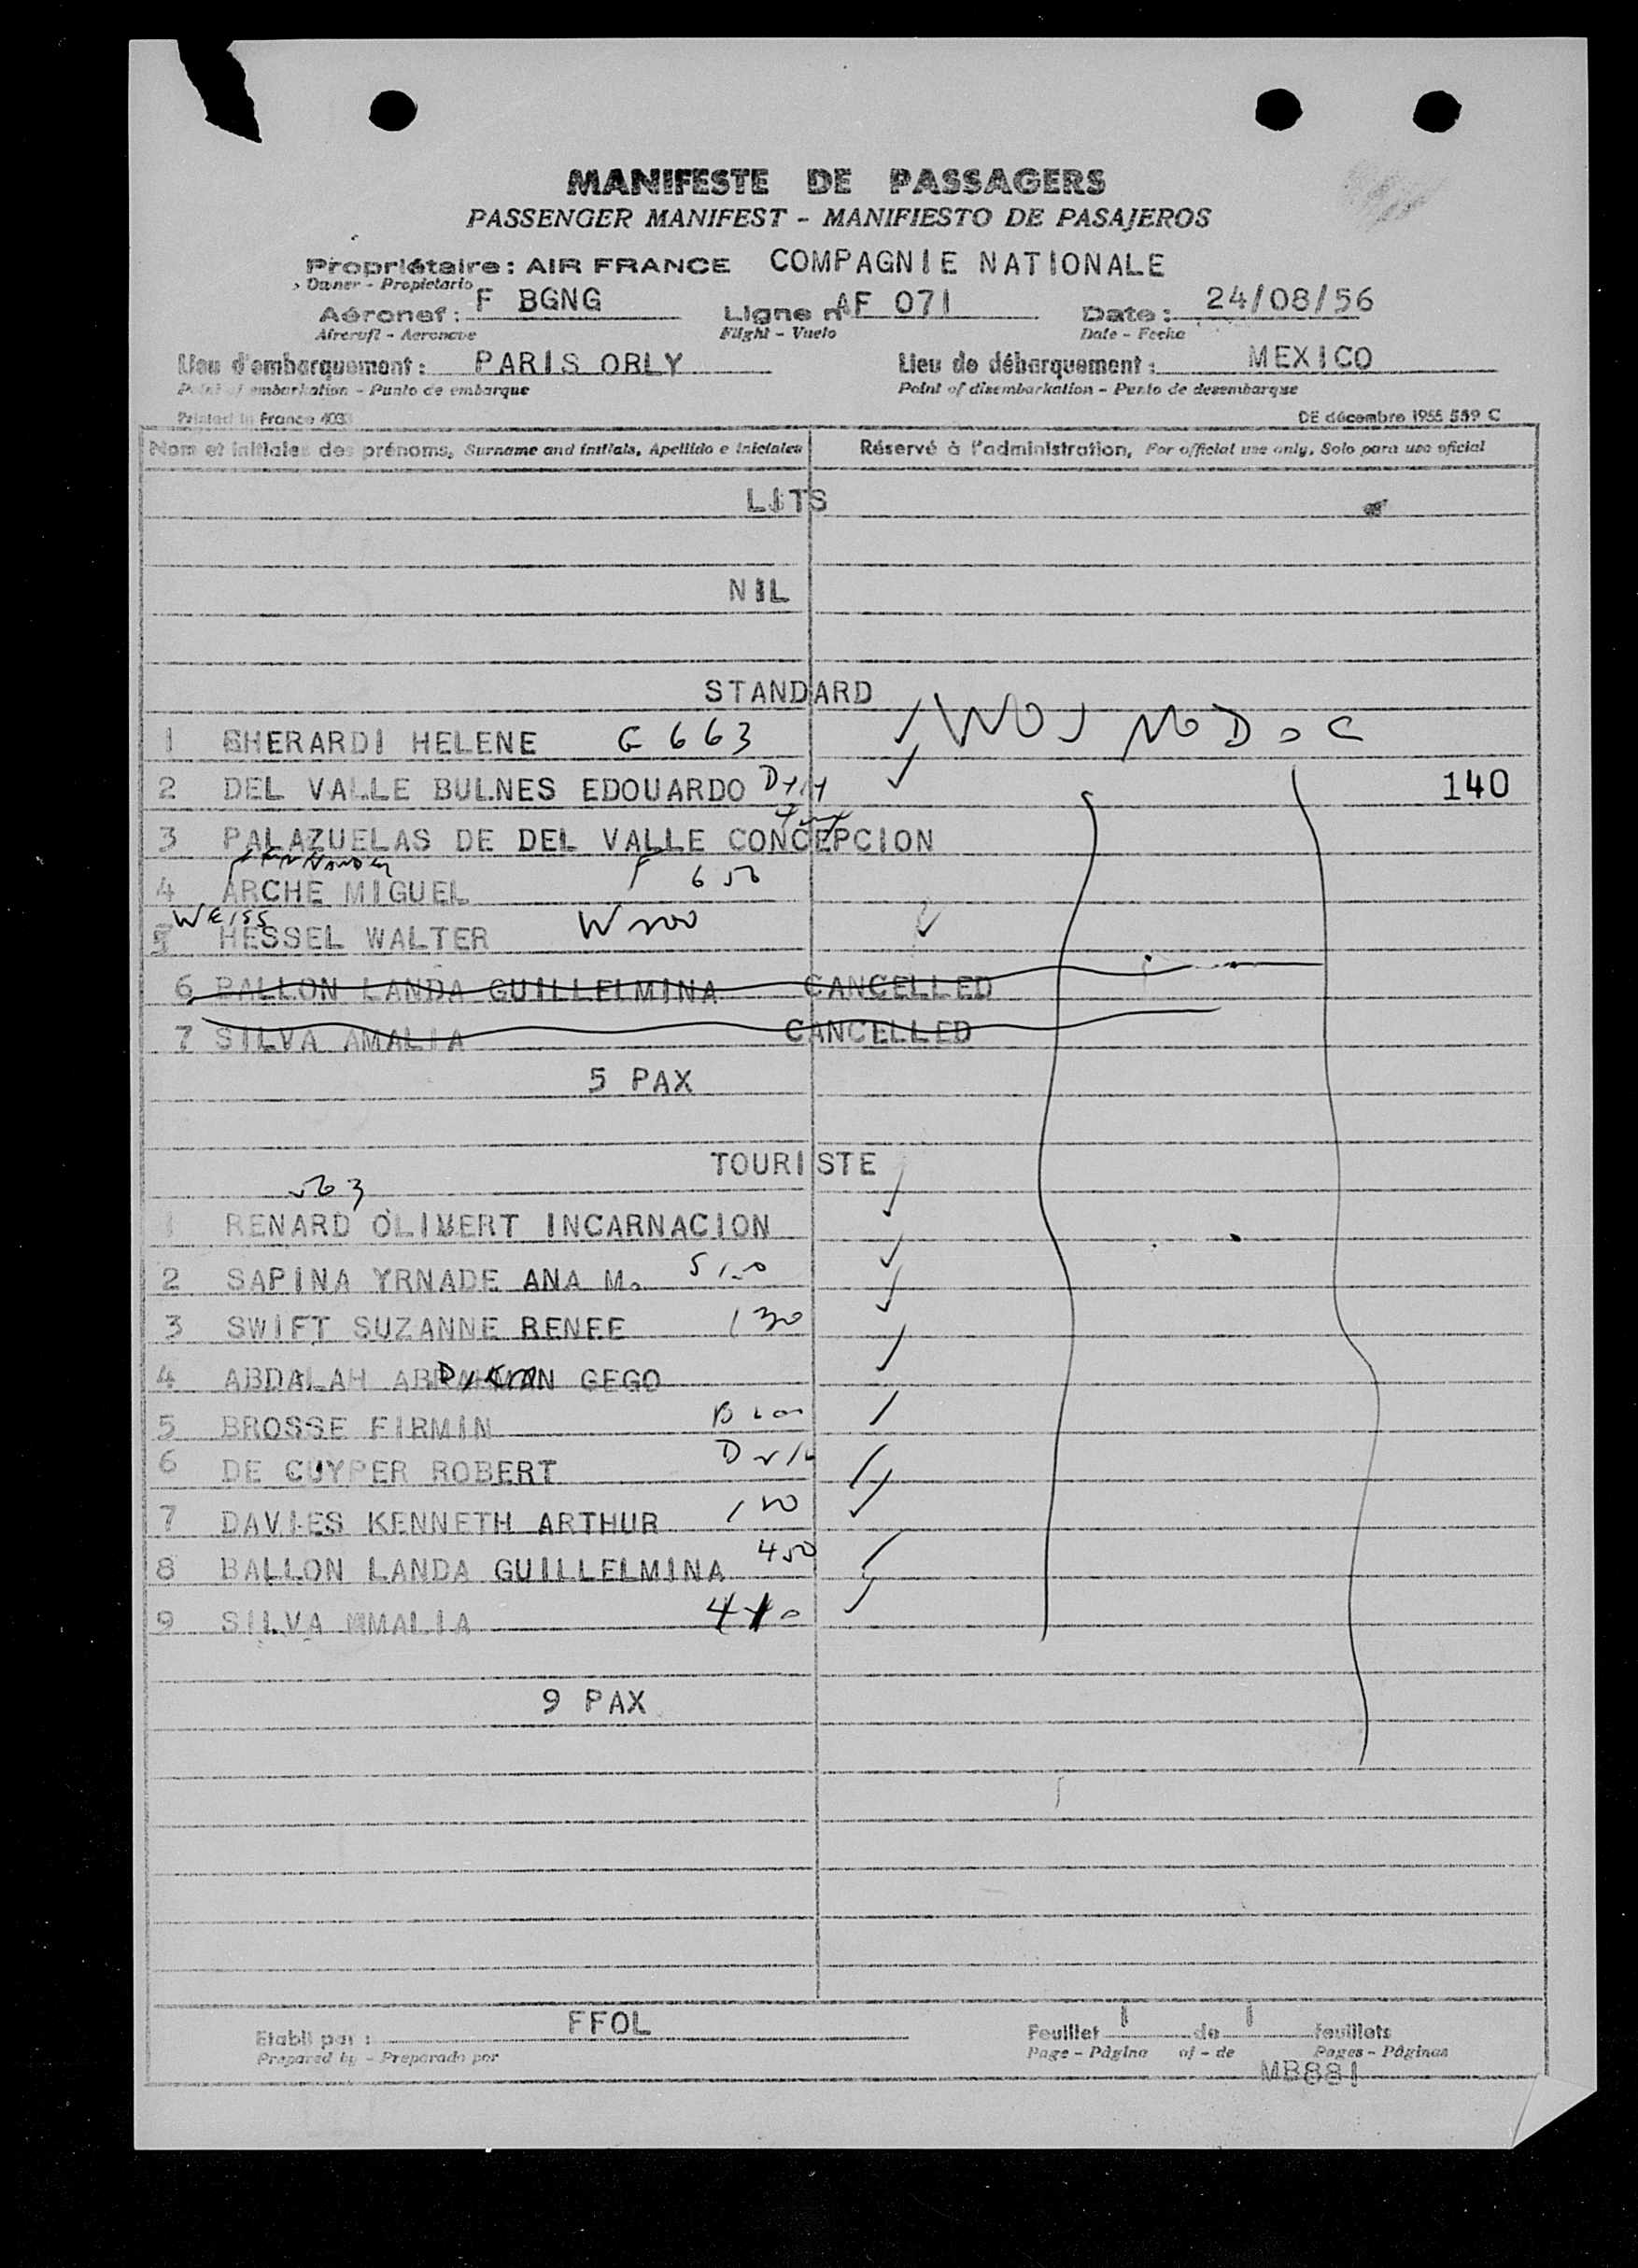 MANIFESTE DE PASSAGERS
PASSENGER MANIFEST - MANIFIESTO DE PASAJEROS
Propriétaire: AIR FRANCE COMPAGNIE NATIONALE
Owner - Propietario
Aéronef: F BGNG Ligne n° AF 071 Date: 24/08/56
Aircraft - Aeronave Flight - Vuelo Date - Fecha
Lieu d'embarquement: PARIS ORLY Lieu de débarquement: MEXICO
Point of embarkation - Punto de embarque Point of disembarkation - Punto de desembarque
Printed in France 403 DE décembre 1955 559 C
Nom et initiales des prénoms, Surname and initials, Apellido e iniciales Réservé à l'administration, For official use only, Solo para uso oficial
LITS
NIL
STANDARD
1 GHERARDI HELENE G 663 NO DOC
2 DEL VALLE BULNES EDOUARDO 140
3 PALAZUELAS DE DEL VALLE CONCEPCION
4 ARCHE MIGUEL F 656
WEISS
5 HESSEL WALTER W 200
6 BALLON LANDA GUILLELMINA CANCELLED
7 SILVA AMALIA CANCELLED
5 PAX
TOURISTE
563
1 RENARD OLIVERT INCARNACION
2 SAPINA YRNADE ANA M.
3 SWIFT SUZANNE RENEE 130
4 ABDALAH GEGO
5 BROSSE FIRMIN
6 DE CUYPER ROBERT
7 DAVIES KENNETH ARTHUR
8 BALLON LANDA GUILLELMINA 450
9 SILVA MMALIA
9 PAX
Etabli par: FFOL Feuillet 1 de 1 feuillets
Prepared by - Preparado por Page - Página of - de Pages - Páginas
MB881